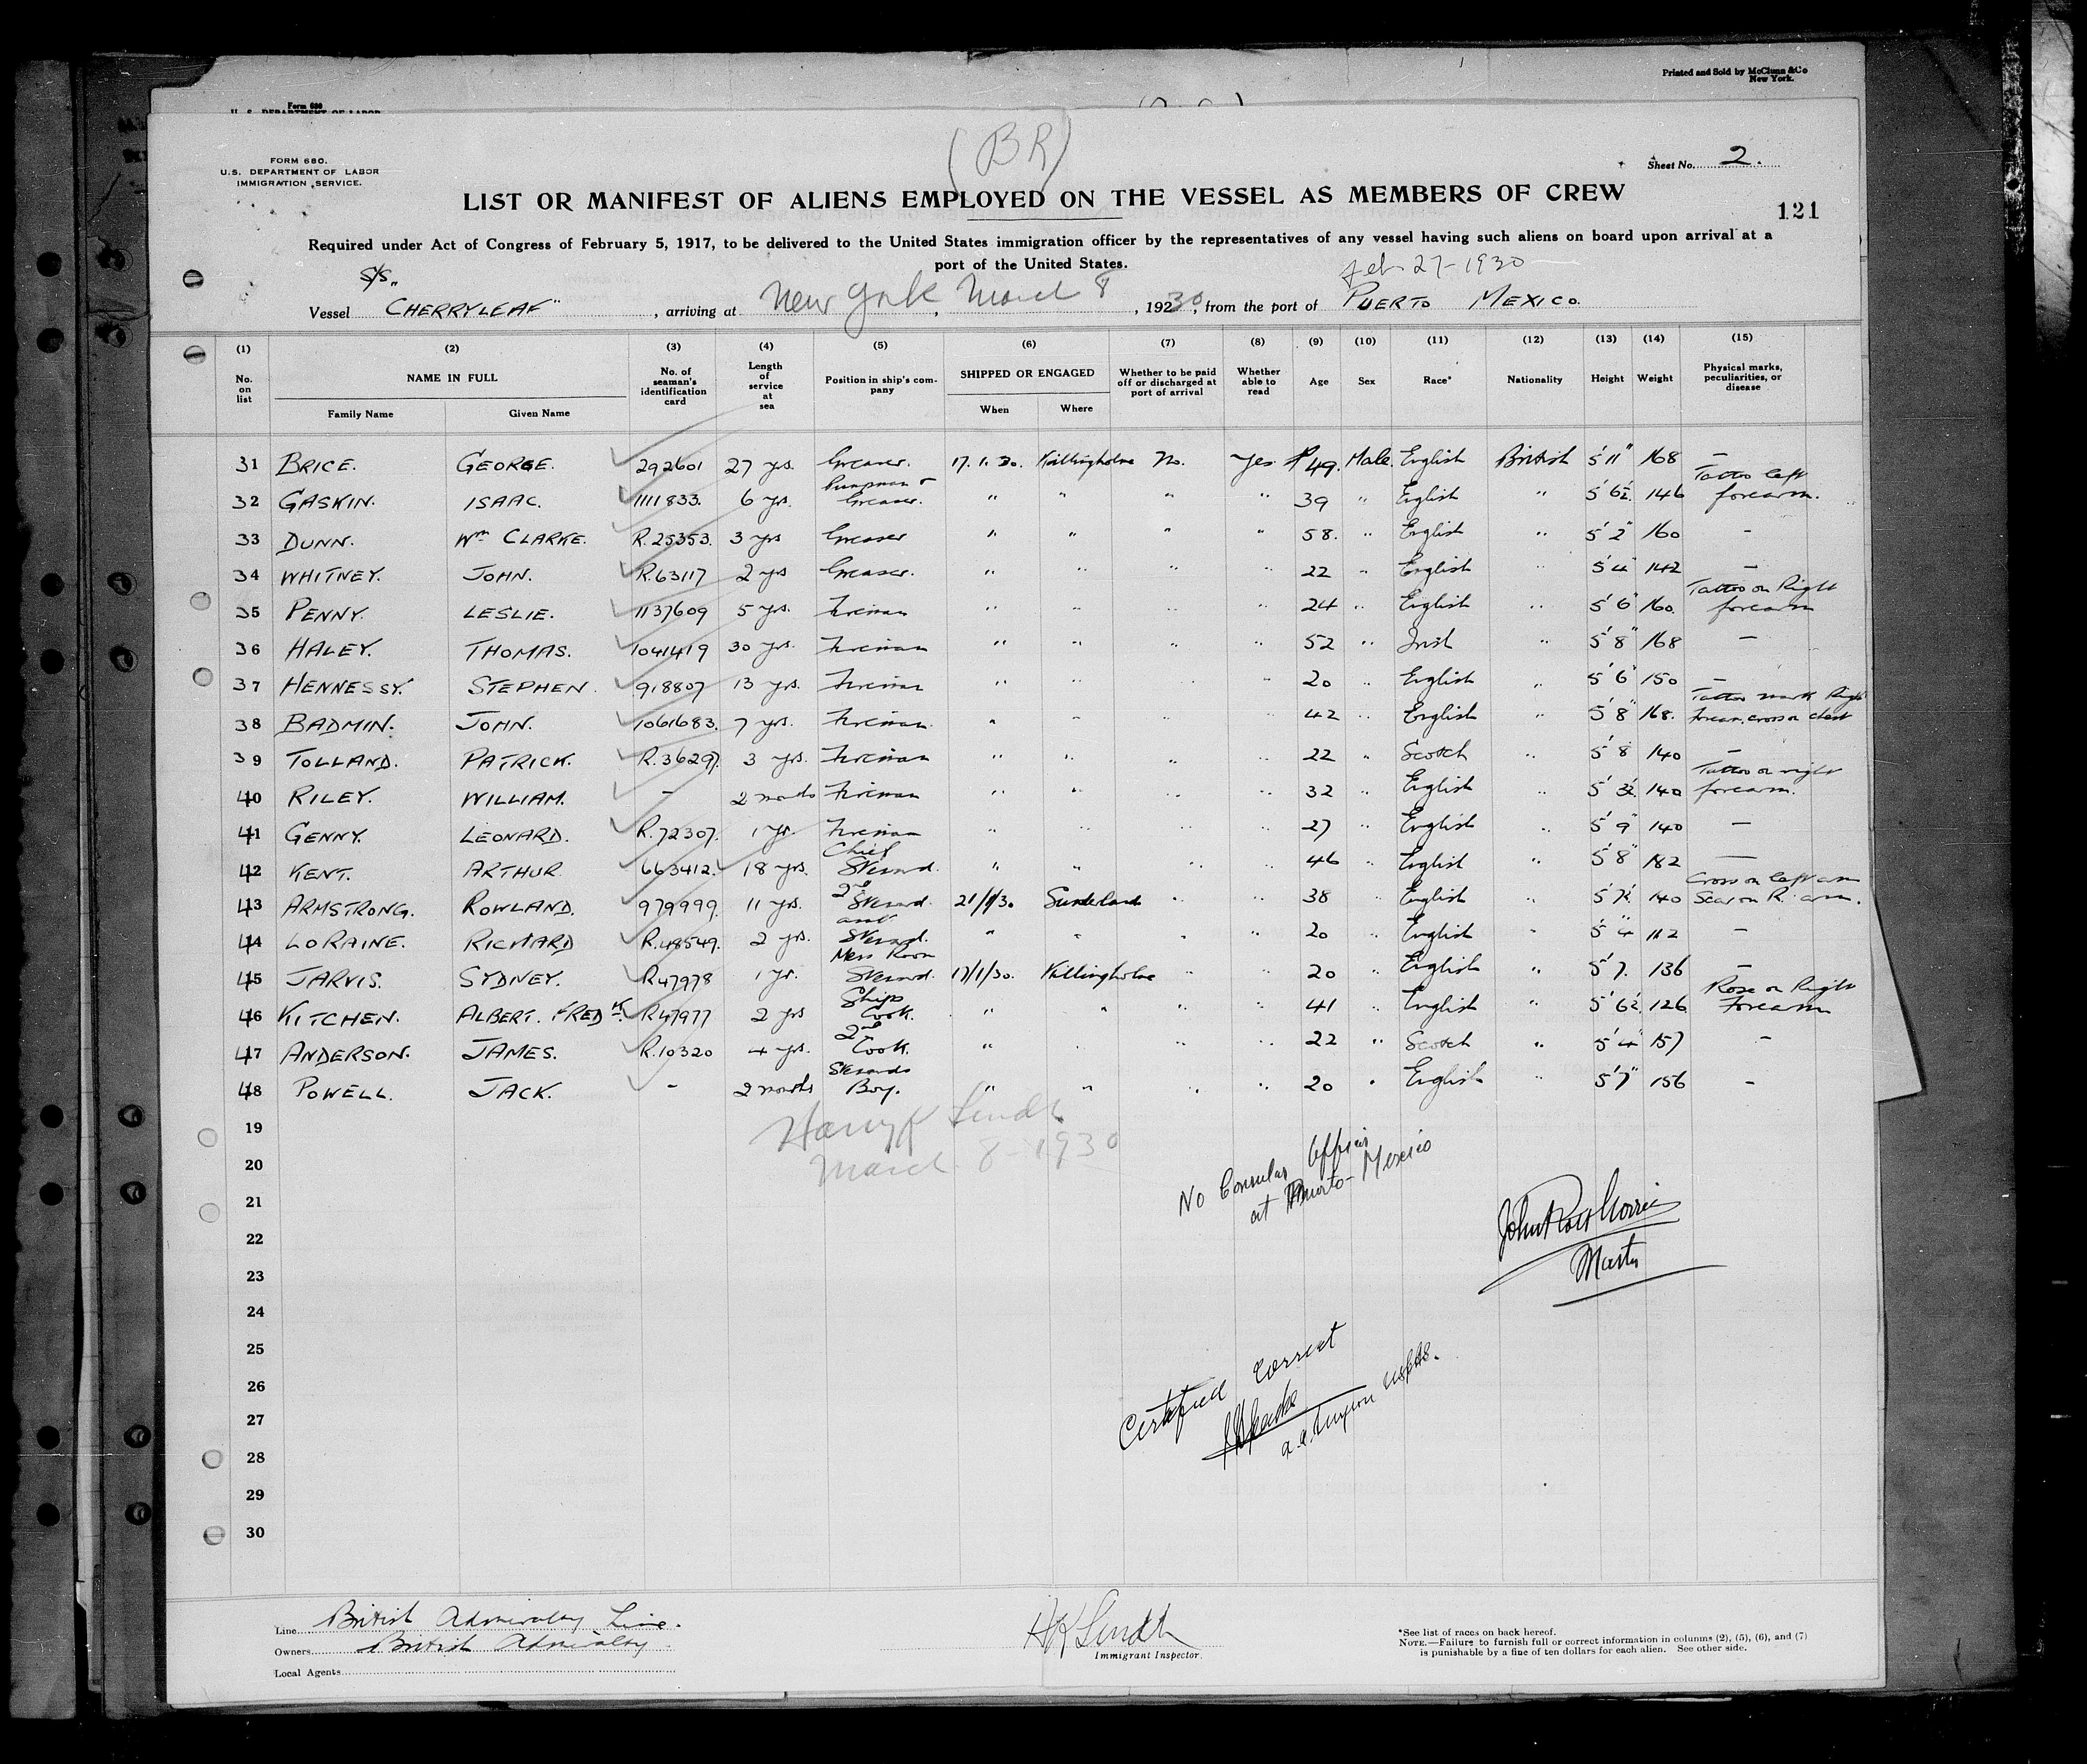 Printed and Sold by McClunn & Co
New York.
Form 680
U. S. DEPARTMENT OF LABOR
(BR)
FORM 680.
U.S. DEPARTMENT OF LABOR
IMMIGRATION SERVICE.
Sheet No. 2.
LIST OR MANIFEST OF ALIENS EMPLOYED ON THE VESSEL AS MEMBERS OF CREW
121
Required under Act of Congress of February 5, 1917, to be delivered to the United States immigration officer by the representatives of any vessel having such aliens on board upon arrival at a
port of the United States.
Feb 27-1930
Vessel S/S. "CHERRYLEAF", arriving at New York March 8, 1930, from the port of PUERTO MEXICO.
(1) (2) (3) (4) (5) (6) (7) (8) (9) (10) (11) (12) (13) (14) (15)
No. on list NAME IN FULL No. of seaman's identification card Length of service at sea Position in ship's company SHIPPED OR ENGAGED Whether to be paid off or discharged at port of arrival Whether able to read Age Sex Race* Nationality Height Weight Physical marks, peculiarities, or disease
Family Name Given Name When Where
31 BRICE. GEORGE. 292601 27 yrs. Greaser. 17.1.30. Killingholme No. Yes 49. Male. English British 5'11" 168 –
32 GASKIN. ISAAC. 1111833. 6 yrs. Pumpman & Greaser. " " " " 39 " English " 5'6½ 146 Tattoo left forearm.
33 DUNN. Wm CLARKE. R.25353. 3 yrs Greaser " " " " 58. " English " 5'2" 160 –
34 WHITNEY. JOHN. R.63117 2 yrs Greaser. " " " " 22 " English 5'4" 142 –
35 PENNY. LESLIE. 1137609 5 yrs. Fireman " " " " 24 " English " 5'6" 160. Tattoo on Right forearm
36 HALEY. THOMAS. 1041419 30 yrs. Fireman " " " " 52 " Irish " 5'8" 168 –
37 HENNESSY. STEPHEN. 918807 13 yrs. Fireman " " " " 20 English " 5'6" 150 –
38 BADMIN. JOHN. 1061683. 7 yrs. Fireman. " " " 42 " English " 5'8" 168. Tattoo mark Right forearm. cross on chest
39 TOLLAND. PATRICK. R.36297. 3 yrs. Fireman " " " " 22 " Scotch " 5'8 140 –
40 RILEY. WILLIAM. – 2 months Fireman " " " " 32 " English " 5'3½ 140 Tattoo on right forearm.
41 GENNY. LEONARD. R.72307. 1 yr. Fireman " " " " 27 " English " 5'9" 140 –
42 KENT. ARTHUR. 663412. 18 yrs. Chief Steward. " " " " 46 " English " 5'8" 182 –
43 ARMSTRONG. ROWLAND. 979999. 11 yrs. 2nd Steward. 21/1/30. Sunderland " " 38 " English " 5'7½ 140 Cross on left arm Scar on R. arm.
44 LORAINE. RICHARD R.48549. 2 yrs. asst. Steward. " " " " 20 " English " 5'4" 112 –
45 JARVIS. SYDNEY. R47978 1 yr. Mess Room Steward. 17/1/30. Killingholme " " 20 " English " 5'7. 136 –
46 KITCHEN. ALBERT. FREDK. R47977 2 yrs Ship's Cook. " " " " 41 " English " 5'6½. 126 Rose on Right Forearm
47 ANDERSON. JAMES. R.10320 4 yrs. 2nd Cook. " " " " 22 " Scotch " 5'4" 157 –
48 POWELL. JACK. – 2 months Stewards Boy. " " " " 20 " English " 5'7" 156 –
19
20
21
22
23
24
25
26
27
28
29
30
March 8-1930
No Consular Officer
at Puerto-Mexico
John Ross
Master
Certified Correct
Line British Admiralty Line.
Owners British Admiralty.
Local Agents
Immigrant Inspector.
*See list of races on back hereof.
NOTE.—Failure to furnish full or correct information in columns (2), (5), (6), and (7)
is punishable by a fine of ten dollars for each alien. See other side.